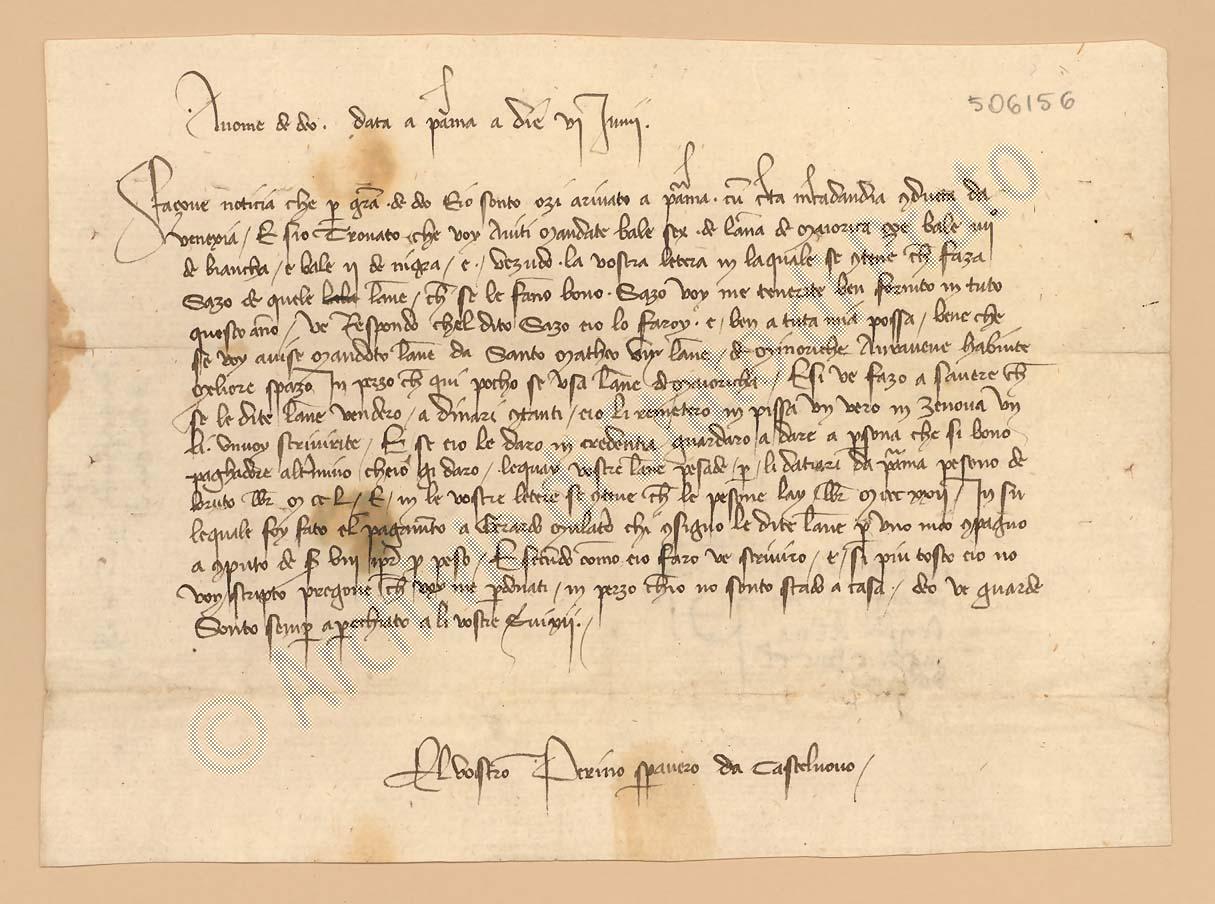 506156
A nome de deo. data a parma a die vi Junii.
Façove noticia che p gra de deo Eio sonto ozi arivato a parma cu certa mercadandia conducta da
venexia / E sio Trovato che voy Aviti Mandate bale sex de lana de Maiorica zoe bale iiii°
de biancha / e bale ii de nigra / e / vezudo la vostra letera in laquale se contene ch faza
Sazo de quele lane / ch se le fano bono Sazo voy me tenerite ben fornito in tuto
questo ano / ve Respondo chel dito Sazo eio lo faroy e ben a tuta mia possa / bene che
se voy avise Mandoto lane da Santo Matheo lane / de Minoriche Aveavene habiute
Meliore spazo In perzo ch qui pocho se usa lane de Maioricha / E si ve fazo a savere ch
se le dite lane vendero / a dinari contanti / eio li remetero in pissa un vero in Zenova un
li unvoy scrivirite / E se eio le daro in credentia guardaro a dare a persona che si bono
paghadore altimino cheio gi daro / lequay vostre lane pesade / p li datiari da parma peseno de
bruto M CC L / E / in le vostre letere se contene ch le pesene lay M CC XXII / In su
lequale foy fato el pagamto a Gerardo ch consigno le dite lane p uno meo conpagno
a conputo de S VIII p peso / E secundo como eio faro ve scriviro / e / si piu tosto eio no
voy scripto pregove ch voy me perdonati / in perzo chio no sonto stado a casa / deo ve guarde
Sonto semp aparechiato a li vostri Servixii /
El vostro Perino spavero da Castelnovo /
© Archivio di Stato di Prato